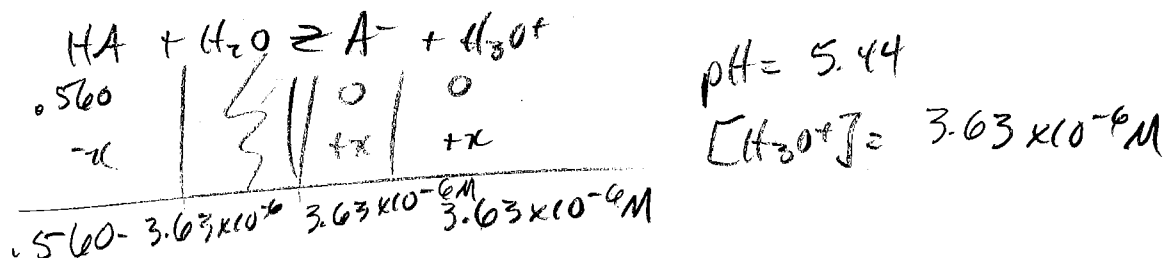 HA + H₂O ⇌ A⁻ + H₃O⁺
.560 0 0
-x +x +x
.560- 3.63x10⁻⁶ 3.63x10⁻⁶M 3.63x10⁻⁶M
pH= 5.44
[H₃O⁺]= 3.63x10⁻⁶M